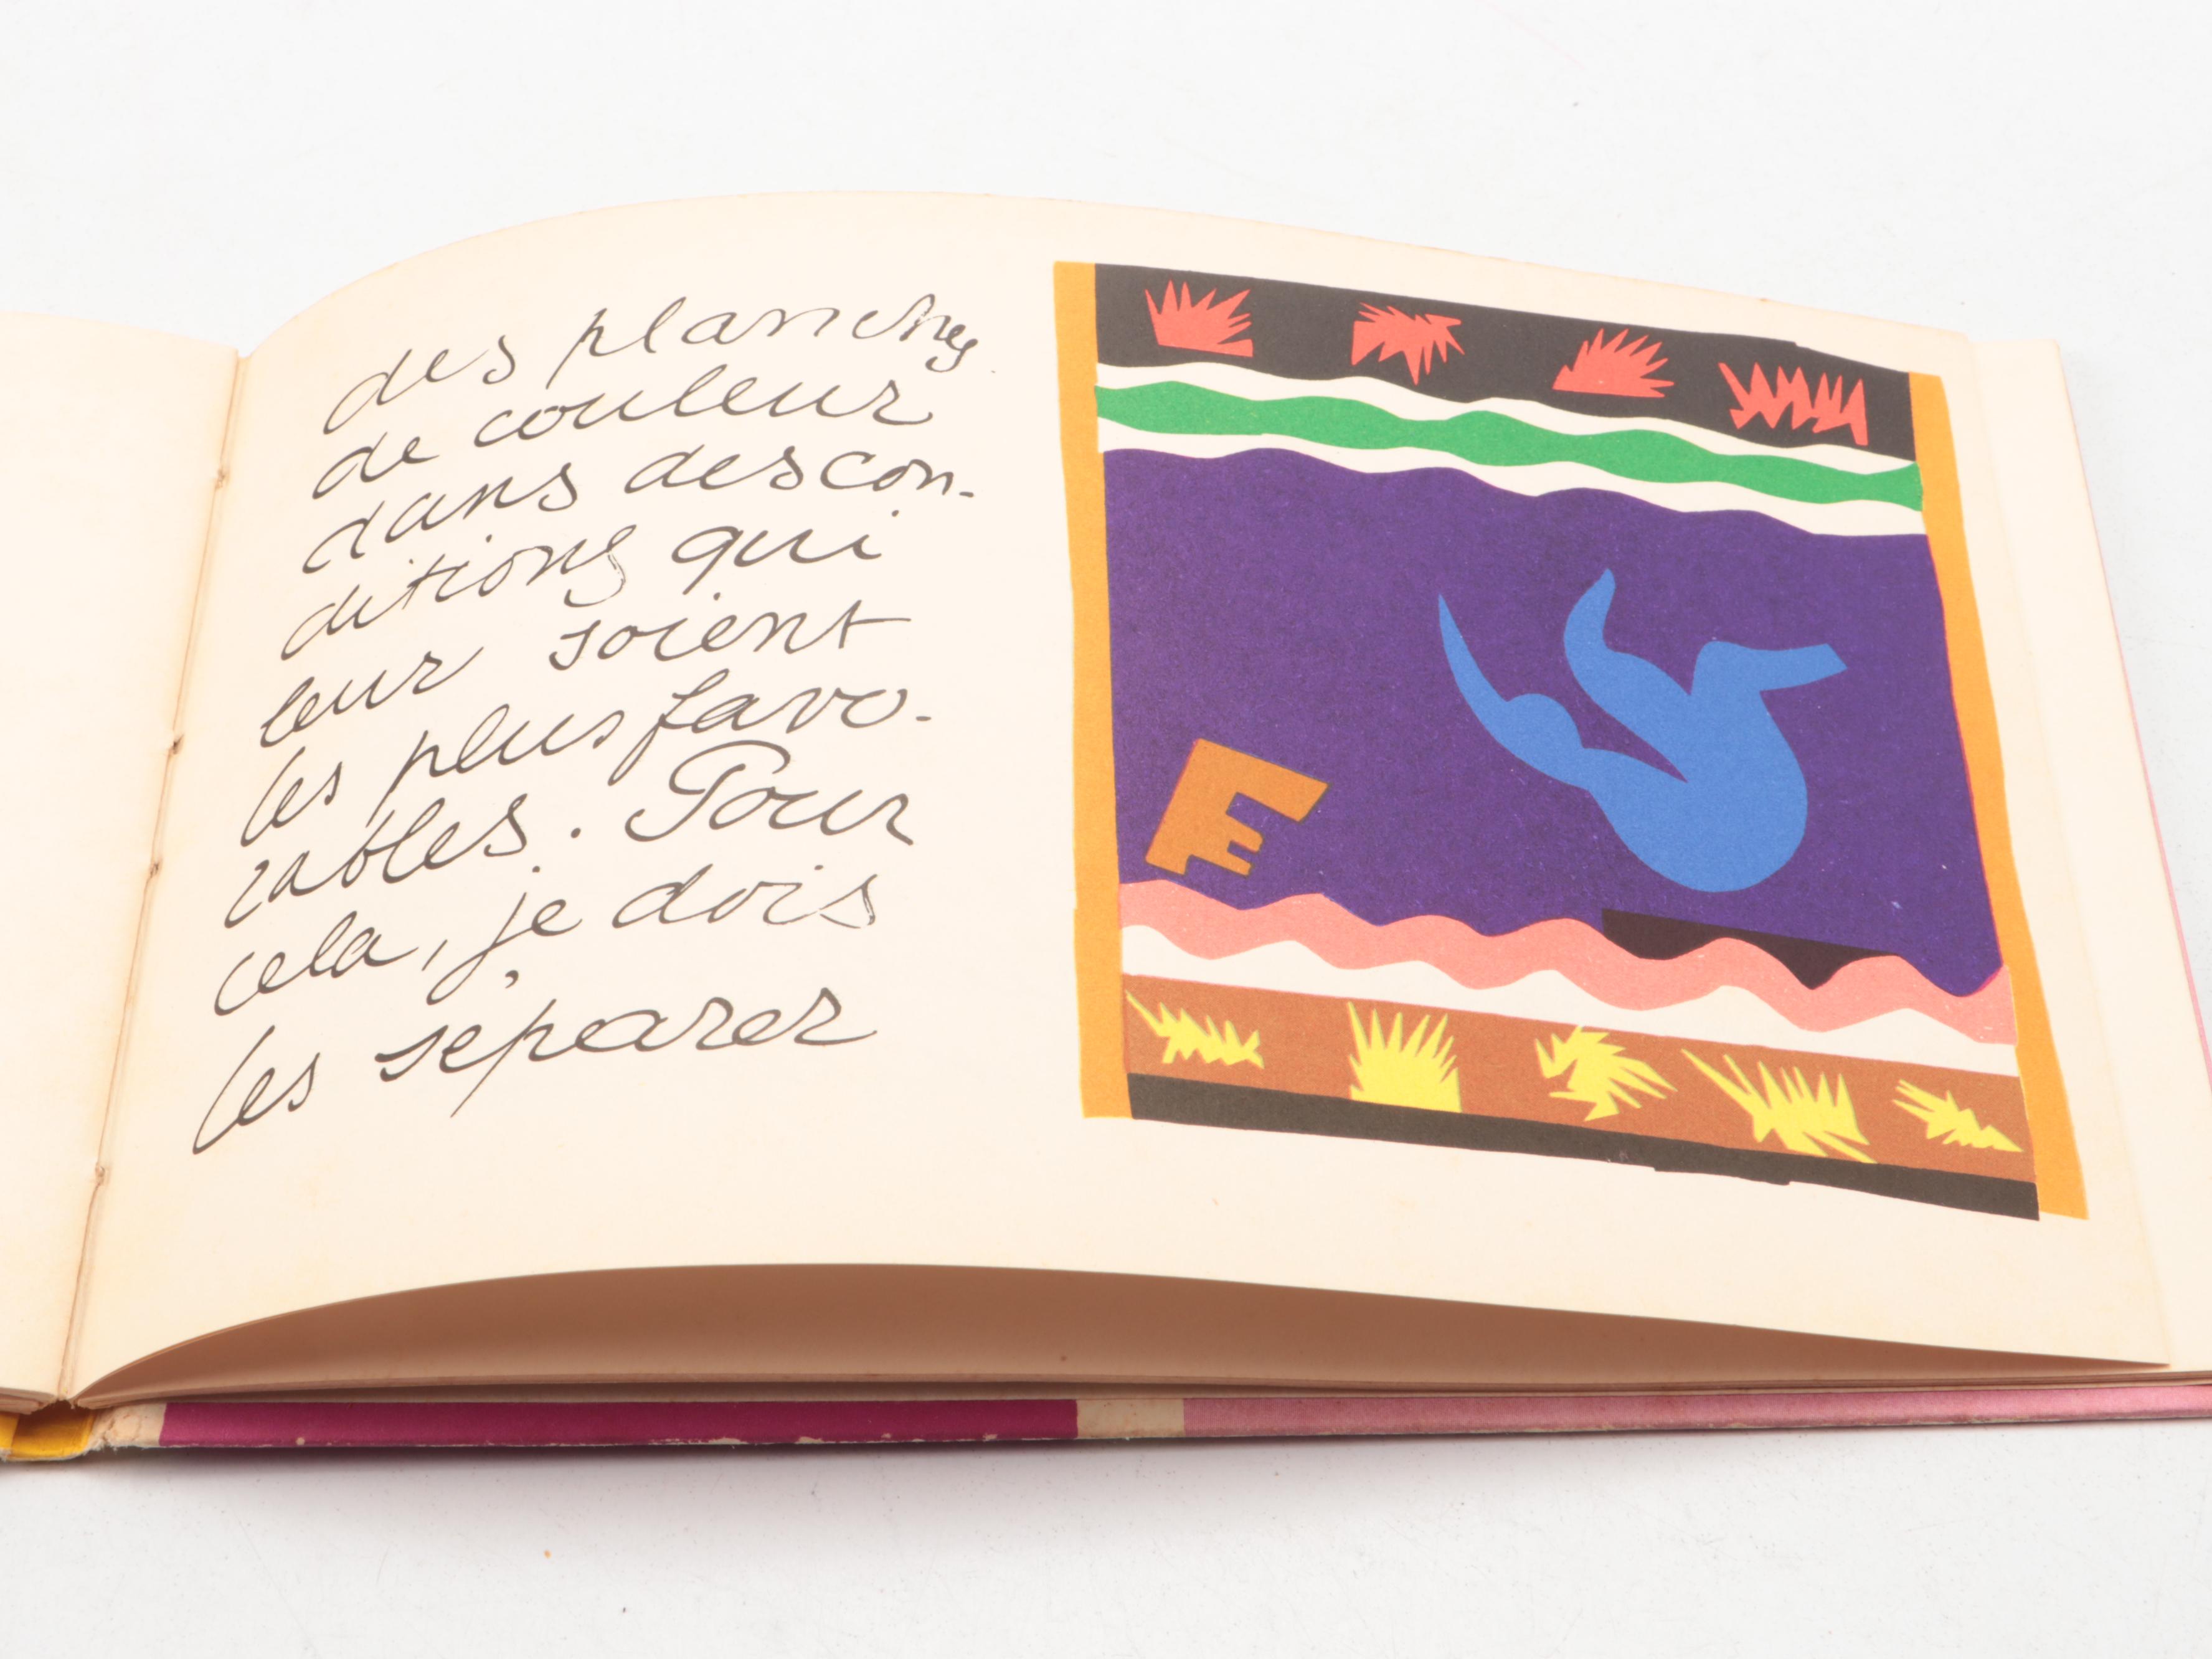 des planches
de couleur
dans des con-
ditions qui
leur soient
les plus favo-
rables. Pour
cela, je dois
les séparer